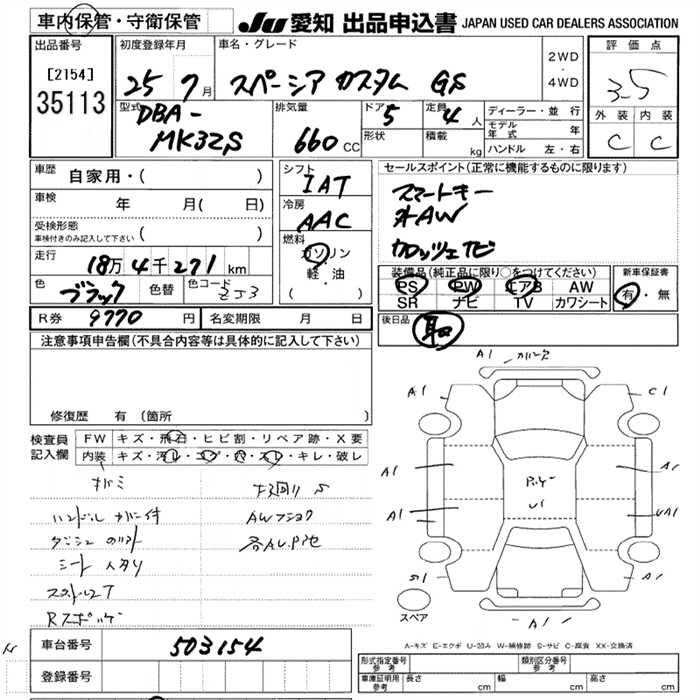 車内保管・守衛保管
JU 愛知 出品申込書 JAPAN USED CAR DEALERS ASSOCIATION
出品番号
[2154]
35113
初度登録年月
25 7月
車名・グレード
スペーシア カスタム GS
2WD
・
4WD
評価点
3.5
外装 内装
C C
型式
DBA-
MK32S
排気量
660 CC
ドア 5
形状
定員 4人
積載 kg
ディーラー・並行
モデル年式 年
ハンドル 左・右
車歴
自家用・( )
車検
年 月( 日)
受検形態
車検付きのみ記入して下さい ( )
走行
18万4千271km
色 ブラック 色替 色コード ZJ3
シフト
IAT
冷房
AAC
燃料
ガソリン
・
軽油
( )
セールスポイント(正常に機能するものに限ります)
スマートキー
社外AW
カロッツェナビ
装備品(純正品に限り○をつけてください)
PS PW エアB AW
SR ナビ TV カワシート
新車保証書
有・無
後日品
取
R券 9770円
名変期限 月 日
注意事項申告欄(不具合内容等は具体的に記入して下さい)
修復歴 有(箇所 )
検査員記入欄
FW キズ・飛石・ヒビ割・リペア跡・X要
内装 キズ・汚レ・コゲ・穴・スレ・キレ・破レ
ハンドル カバー付
シート
A1
A1 C1
A1 A1
A1 UA1
S1 A1
A1
U1
スペア
A-キズ E-エクボ U-凹み W-補修跡 S-サビ C-腐食 XX-交換済
車台番号 503154
登録番号
形式指定番号 参考
類別区分番号 参考
車庫証明用 参考
長さ cm
幅 cm
高さ cm